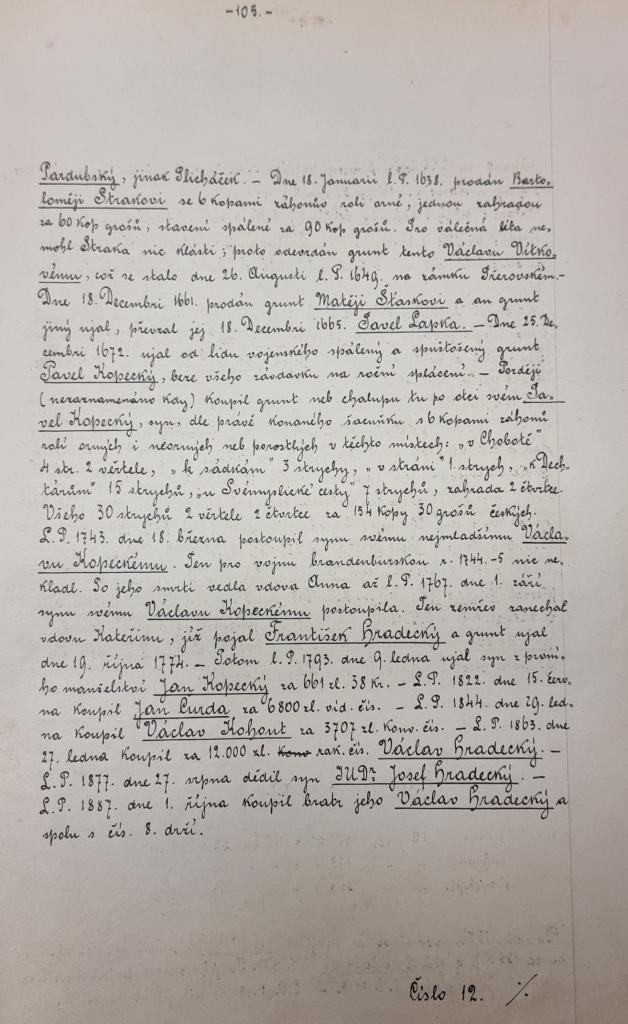 -105.-
Pardubský, jinak Plicháček. — Dne 18. Januarii l. P. 1638. prodán Barto-
loměji Strakovi se 6 kopami záhonův rolí orné, jednou zahradou
za 60 kop grošů, stavení spálené za 90 kop grošů. Pro válečná léta ne-
mohl Straka nic klásti; proto odevzdán grunt tento Václavu Vítko-
vému, což se stalo dne 26. Augusti l. P. 1649. na zámku Přerovském.—
Dne 18. Decembri 1661. prodán grunt Matěji Šťaskovi a an grunt
jiný ujal, převzal jej 18. Decembri 1665. Pavel Lapka. — Dne 25. De-
cembri 1672. ujal od lidu vojenského spálený a spuštošený grunt
Pavel Kopecký, beze všeho závdavku na roční splácení. — Později
(nezaznamenáno kdy) koupil grunt neb chalupu tu po otci svém Pa-
vel Kopecký, syn, dle právě konaného šacuňku s 6 kopami záhonů
rolí orných i neorných neb porostlých v těchto místech: „v Chobotě"
4 str. 2 věrtele, „k sádkám" 3 strychy, „v stráni" 1. strych, „k Dech-
tárům" 15 strychů, „u Svémyslické cesty" 7 strychů, zahrada 2 čtvrtce.
Všeho 30 strychů 2 věrtele 2 čtvrtce za 154 kopy 30 grošů českých.
L. P. 1743. dne 18. března postoupil synu svému nejmladšímu Václa-
vu Kopeckému. Ten pro vojnu brandenburskou r. 1744.-5 nic ne-
kladl. Po jeho smrti vedla vdova Anna až l. P. 1767. dne 1. září
synu svému Václavu Kopeckému postoupila. Ten zemřev zanechal
vdovu Kateřinu, již pojal František Hradecký a grunt ujal
dne 19. října 1774. — Potom l. P. 1793. dne 9. ledna ujal syn z první-
ho manželství Jan Kopecký za 661 zl. 38 kr. — L. P. 1822. dne 15. červ-
na koupil Jan Čurda za 6800 zl. víd. čís. — L. P. 1844. dne 29. led-
na koupil Václav Kohout za 3707 zl. konv. čís. — L. P. 1863. dne
27. ledna koupil za 12.000 zl. konv rak. čís. Václav Hradecký. —
L. P. 1877. dne 27. srpna dědil syn JUDr. Josef Hradecký. —
L. P. 1887. dne 1. října koupil bratr jeho Václav Hradecký a
spolu s čís. 8. drží.
Číslo 12. ./.